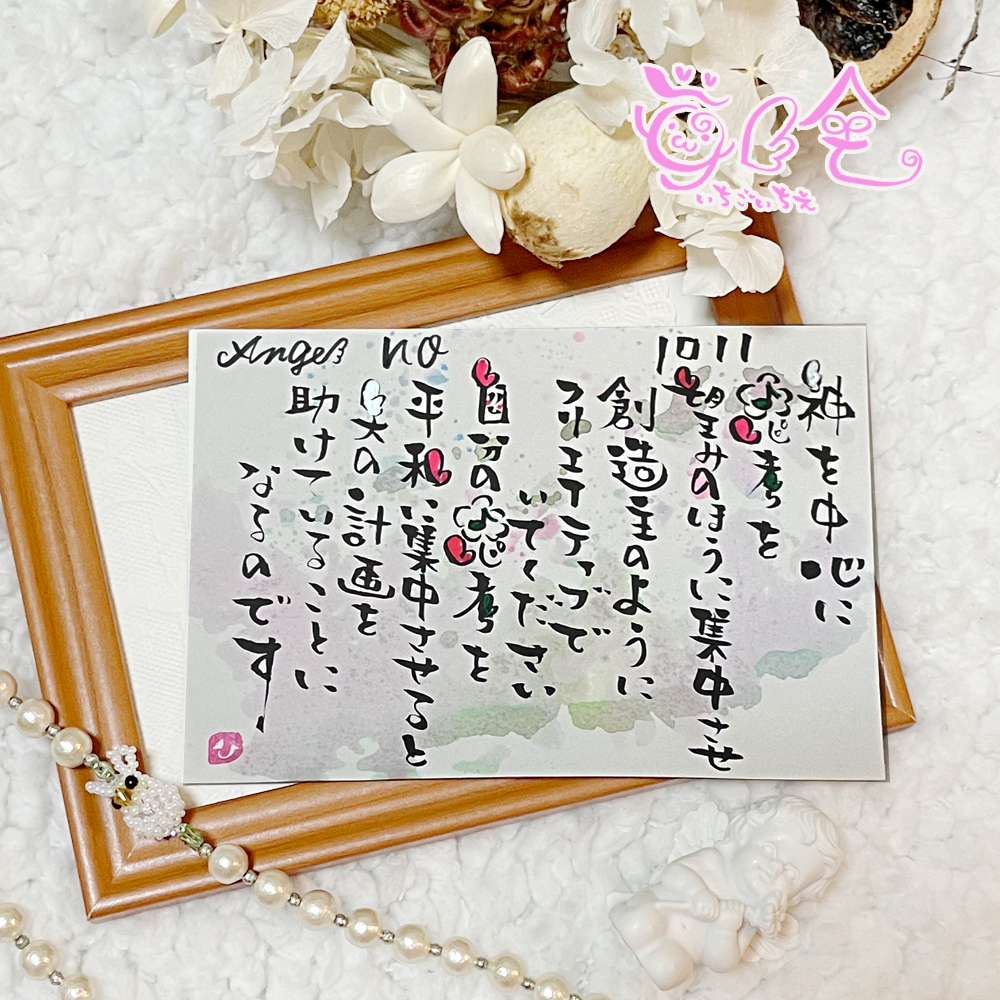 Angel NO
1011
神を中心に
思考を
望みのほうに集中させ
創造主のように
クリエイティブで
いてください
自分の思考を
平和に集中させると
天の計画を
助けていることに
なるのです
いちごいちえ